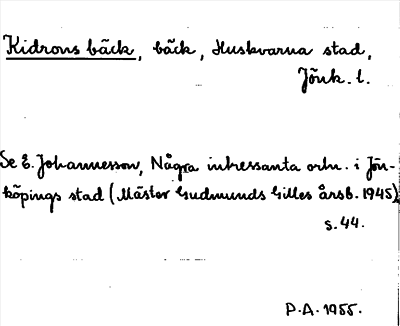 Kidrons bäck, bäck, Huskvarna stad,
Jönk. l.
Se E. Johannesson, Några intressanta ortn. i Jön-
köpings stad (Mäster Gudmunds Gilles årsb. 1945)
s. 44.
P.A. 1955.